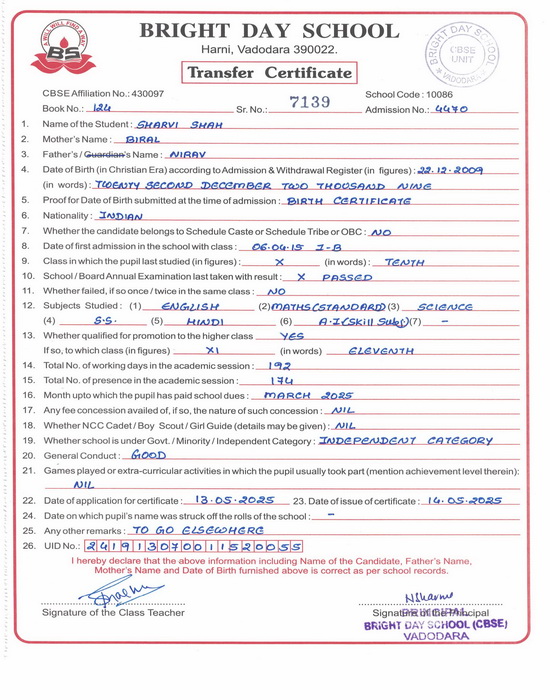 A WILL WILL FIND A WAY
BS
BRIGHT DAY SCHOOL
Harni, Vadodara 390022.
Transfer Certificate
BRIGHT DAY SCHOOL
CBSE
UNIT
VADODARA
CBSE Affiliation No.: 430097 School Code : 10086
Book No.: 124 Sr. No.: 7139 Admission No.: 4470
1. Name of the Student : SHARVI SHAH
2. Mother's Name : BIRAL
3. Father's / Guardian's Name : NIRAV
4. Date of Birth (in Christian Era) according to Admission & Withdrawal Register (in figures) : 22.12.2009
(in words) : TWENTY SECOND DECEMBER TWO THOUSAND NINE
5. Proof for Date of Birth submitted at the time of admission : BIRTH CERTIFICATE
6. Nationality : INDIAN
7. Whether the candidate belongs to Schedule Caste or Schedule Tribe or OBC : NO
8. Date of first admission in the school with class : 06.04.15 I-B
9. Class in which the pupil last studied (in figures) : X (in words) : TENTH
10. School / Board Annual Examination last taken with result : X PASSED
11. Whether failed, if so once / twice in the same class : NO
12. Subjects Studied : (1) ENGLISH (2) MATHS(STANDARD) (3) SCIENCE
(4) S.S. (5) HINDI (6) A.I (Skill Subj) (7) -
13. Whether qualified for promotion to the higher class YES
If so, to which class (in figures) XI (in words) ELEVENTH
14. Total No. of working days in the academic session : 192
15. Total No. of presence in the academic session : 174
16. Month upto which the pupil has paid school dues : MARCH 2025
17. Any fee concession availed of, if so, the nature of such concession : NIL
18. Whether NCC Cadet / Boy Scout / Girl Guide (details may be given) : NIL
19. Whether school is under Govt. / Minority / Independent Category : INDEPENDENT CATEGORY
20. General Conduct : GOOD
21. Games played or extra-curricular activities in which the pupil usually took part (mention achievement level therein):
NIL
22. Date of application for certificate : 13.05.2025 23. Date of issue of certificate : 14.05.2025
24. Date on which pupil's name was struck off the rolls of the school : -
25. Any other remarks : TO GO ELSEWHERE
26. UID No.: 241913070011520055
I hereby declare that the above information including Name of the Candidate, Father's Name,
Mother's Name and Date of Birth furnished above is correct as per school records.
NSharma
Signature of the Class Teacher Signature of the Principal
PRINCIPAL
BRIGHT DAY SCHOOL (CBSE)
VADODARA